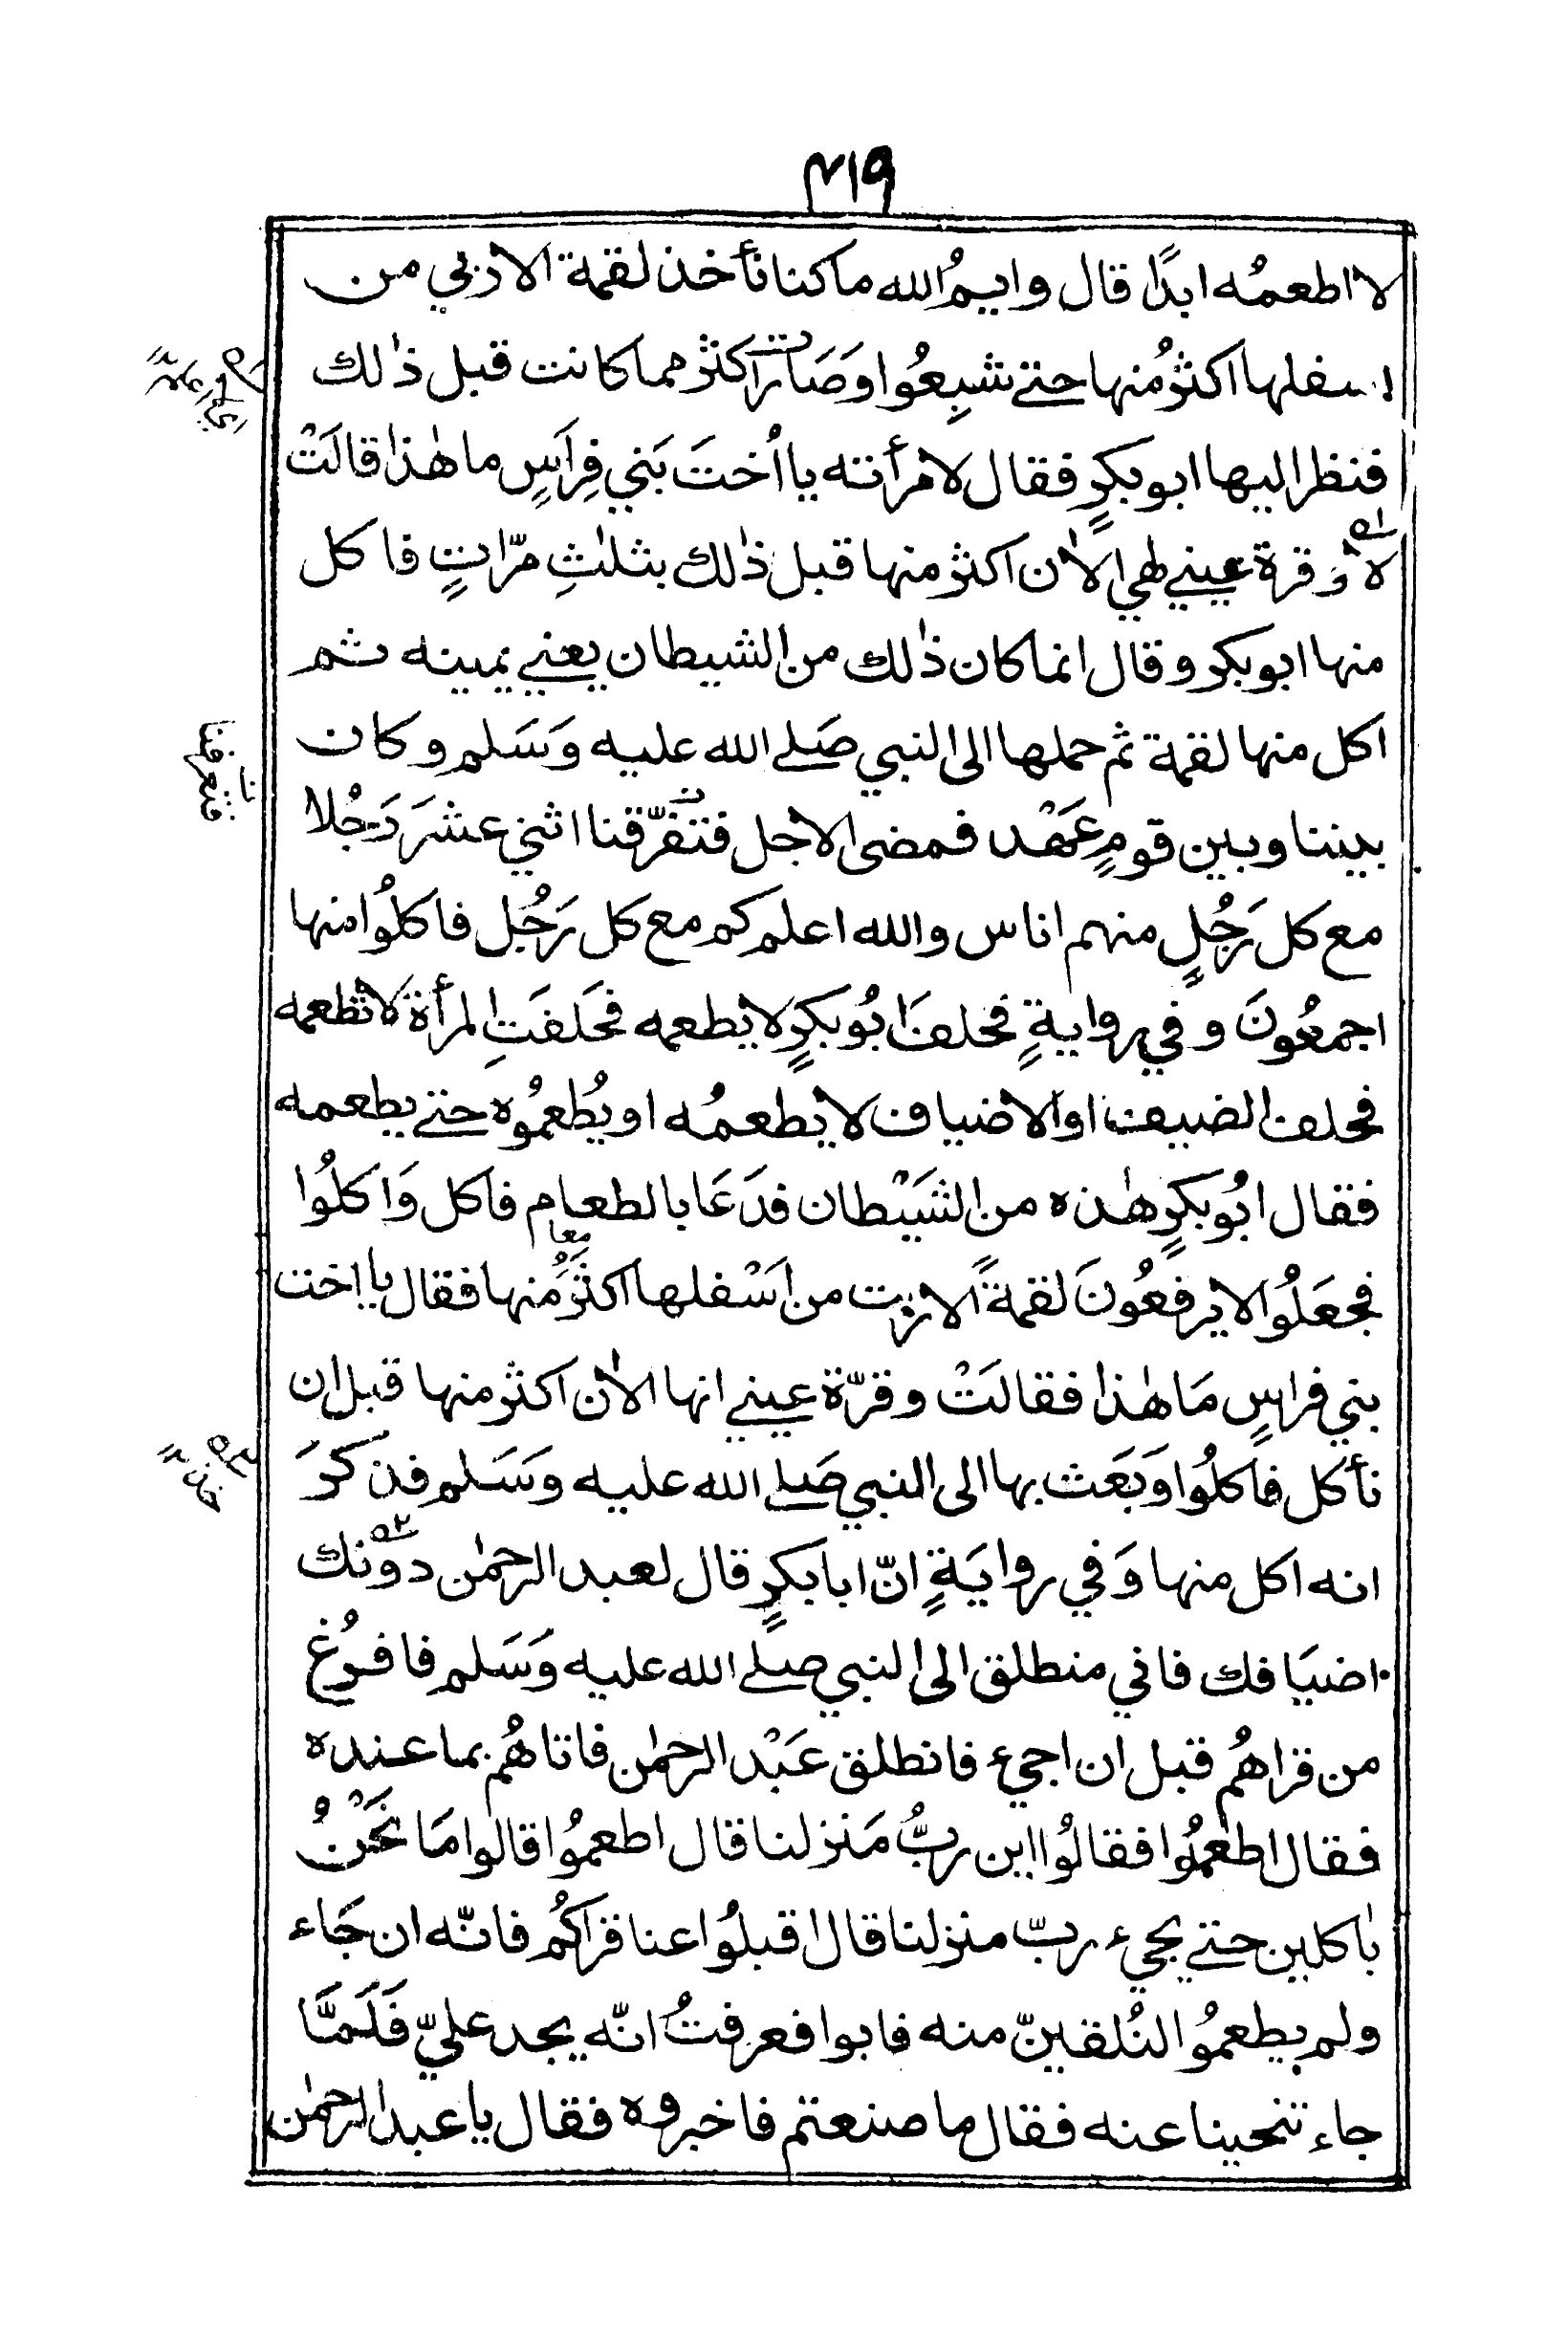 ٤١٩
لا اطعمُه ابدًا قال وايمُ الله ما كنا نأخذ لقمة الا ربي من
اسفلها اكثرُ منها حتى شبِعُوا وَصَارت اكثر مما كانت قبل ذٰلك
فنظر اليها ابو بكرٍ فقال لامرأته يا اُختَ بَني فِرَاسٍ ما هٰذا قالَتْ
لا وَ قرة عيني لهي الاٰن اكثر منها قبل ذٰلك بثلٰثِ مرّاتٍ فاكل
منها ابو بكر وقال انما كان ذٰلك من الشيطان يعني يمينه ثم
اكل منها لقمة ثم حملها الى النبي صَلى الله عليه وَسَلم وكان
بيننا وبين قومٍ عَهْد فمضى الاجل فتفرّقنا اثني عشَرَ رَجُلا
مع كل رَجُلٍ منهم اناس والله اعلم كم مع كل رَجُل فاكلُوا منها
اجمعُونَ و في روايةٍ فحلف ابُو بكرٍ لا يطعمه فحَلفَتِ المرأة لا تطعمه
فحلف الضيف او الاضياف لا يطعمُه او يُطعمُوه حتى يطعمه
فقال ابُو بكرٍ هٰذه من الشَيْطان فدَعَا بالطعام فاكل وَاكلُوا
فجعَلُوا لا يرفعُونَ لقمةً الا ربت من اَسْفلها اكثَرُ منها فقال يا اخت
بني فراسٍ مَا هٰذا فقالَتْ وقرّة عيني انها الاٰن اكثر منها قبل ان
نأكل فاكلُوا وَبَعَث بها الى النبي صَلى الله عليه وَسَلم فذكرَ
انه اكل منها وَفي روايَةٍ انّ ابا بكرٍ قال لعبد الرحمٰن دونك
اضيَافك فاني منطلق الى النبي صلى الله عليه وَسَلم فافرُغ
من قراهُم قبل ان اجيء فانطلق عَبْد الرحمٰن فاتاهُم بما عنده
فقال اطعمُوا فقالُوا اين ربُّ مَنزلنا قال اطعمُوا قالوا مَا نَحْنُ
باٰكلين حتى يجيء ربّ منزلنا قال اقبلُوا عنا قراكُم فانّه ان جَاء
ولم يطعمُوا لنُلقينّ منه فابوا فعرفتُ انّه يجد عليّ فَلَمَّا
جاء تنحينا عنه فقال ما صنعتم فاخبروه فقال يا عبد الرحمٰن
فتعرفنا